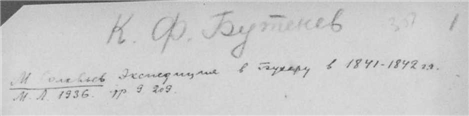 К. Ф. Бутенев
М. Соловьев Экспедиция в Бухару в 1841-1842 гг.
М. Л. 1936. стр 9 209.